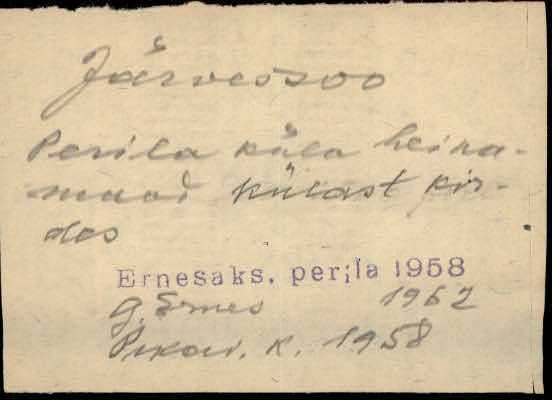 Järvessoo
Perila küla heina-
maad külast kir-
des
Ernesaks, perila 1958
G. Ernes 1962
k. 1958